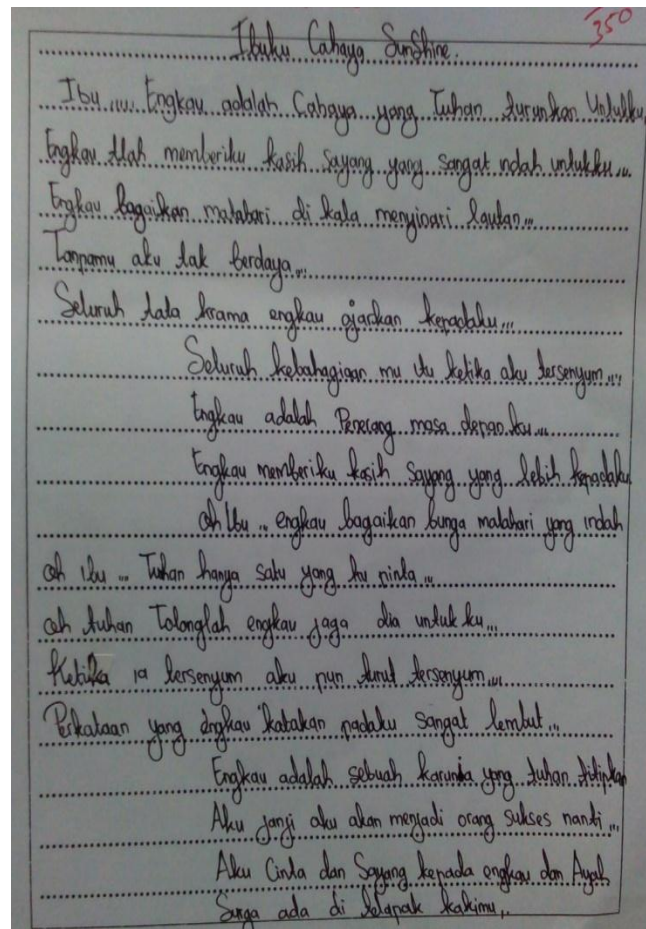 350
Ibuku Cahaya SunShine.
Ibu ,,,, Engkau adalah Cahaya yang Tuhan turunkan Untukku,
Engkau tlah memberiku kasih sayang yang sangat indah untukku ,,,
Engkau bagaikan matahari di kala menyinari lautan ,,,
Tanpamu aku tak berdaya ,,,
Seluruh tata krama engkau ajarkan kepadaku ,,,
Seluruh kebahagiaan mu itu ketika aku tersenyum ,,,
Engkau adalah Penerang masa depan ku ,,,
Engkau memberiku kasih Sayang yang lebih kepadaku
Oh Ibu ,, engkau bagaikan bunga matahari yang indah
Oh Ibu ,,, Tuhan hanya satu yang ku pinta ,,,
Oh tuhan Tolonglah engkau jaga dia untuk ku ,,,
Ketika ia tersenyum aku pun turut tersenyum ,,,
Perkataan yang engkau katakan padaku sangat lembut ,,,
Engkau adalah sebuah karunia yang tuhan titipkan
Aku janji aku akan menjadi orang sukses nanti ,,,
Aku Cinta dan Sayang kepada engkau dan Ayah
Surga ada di telapak kakimu ,,